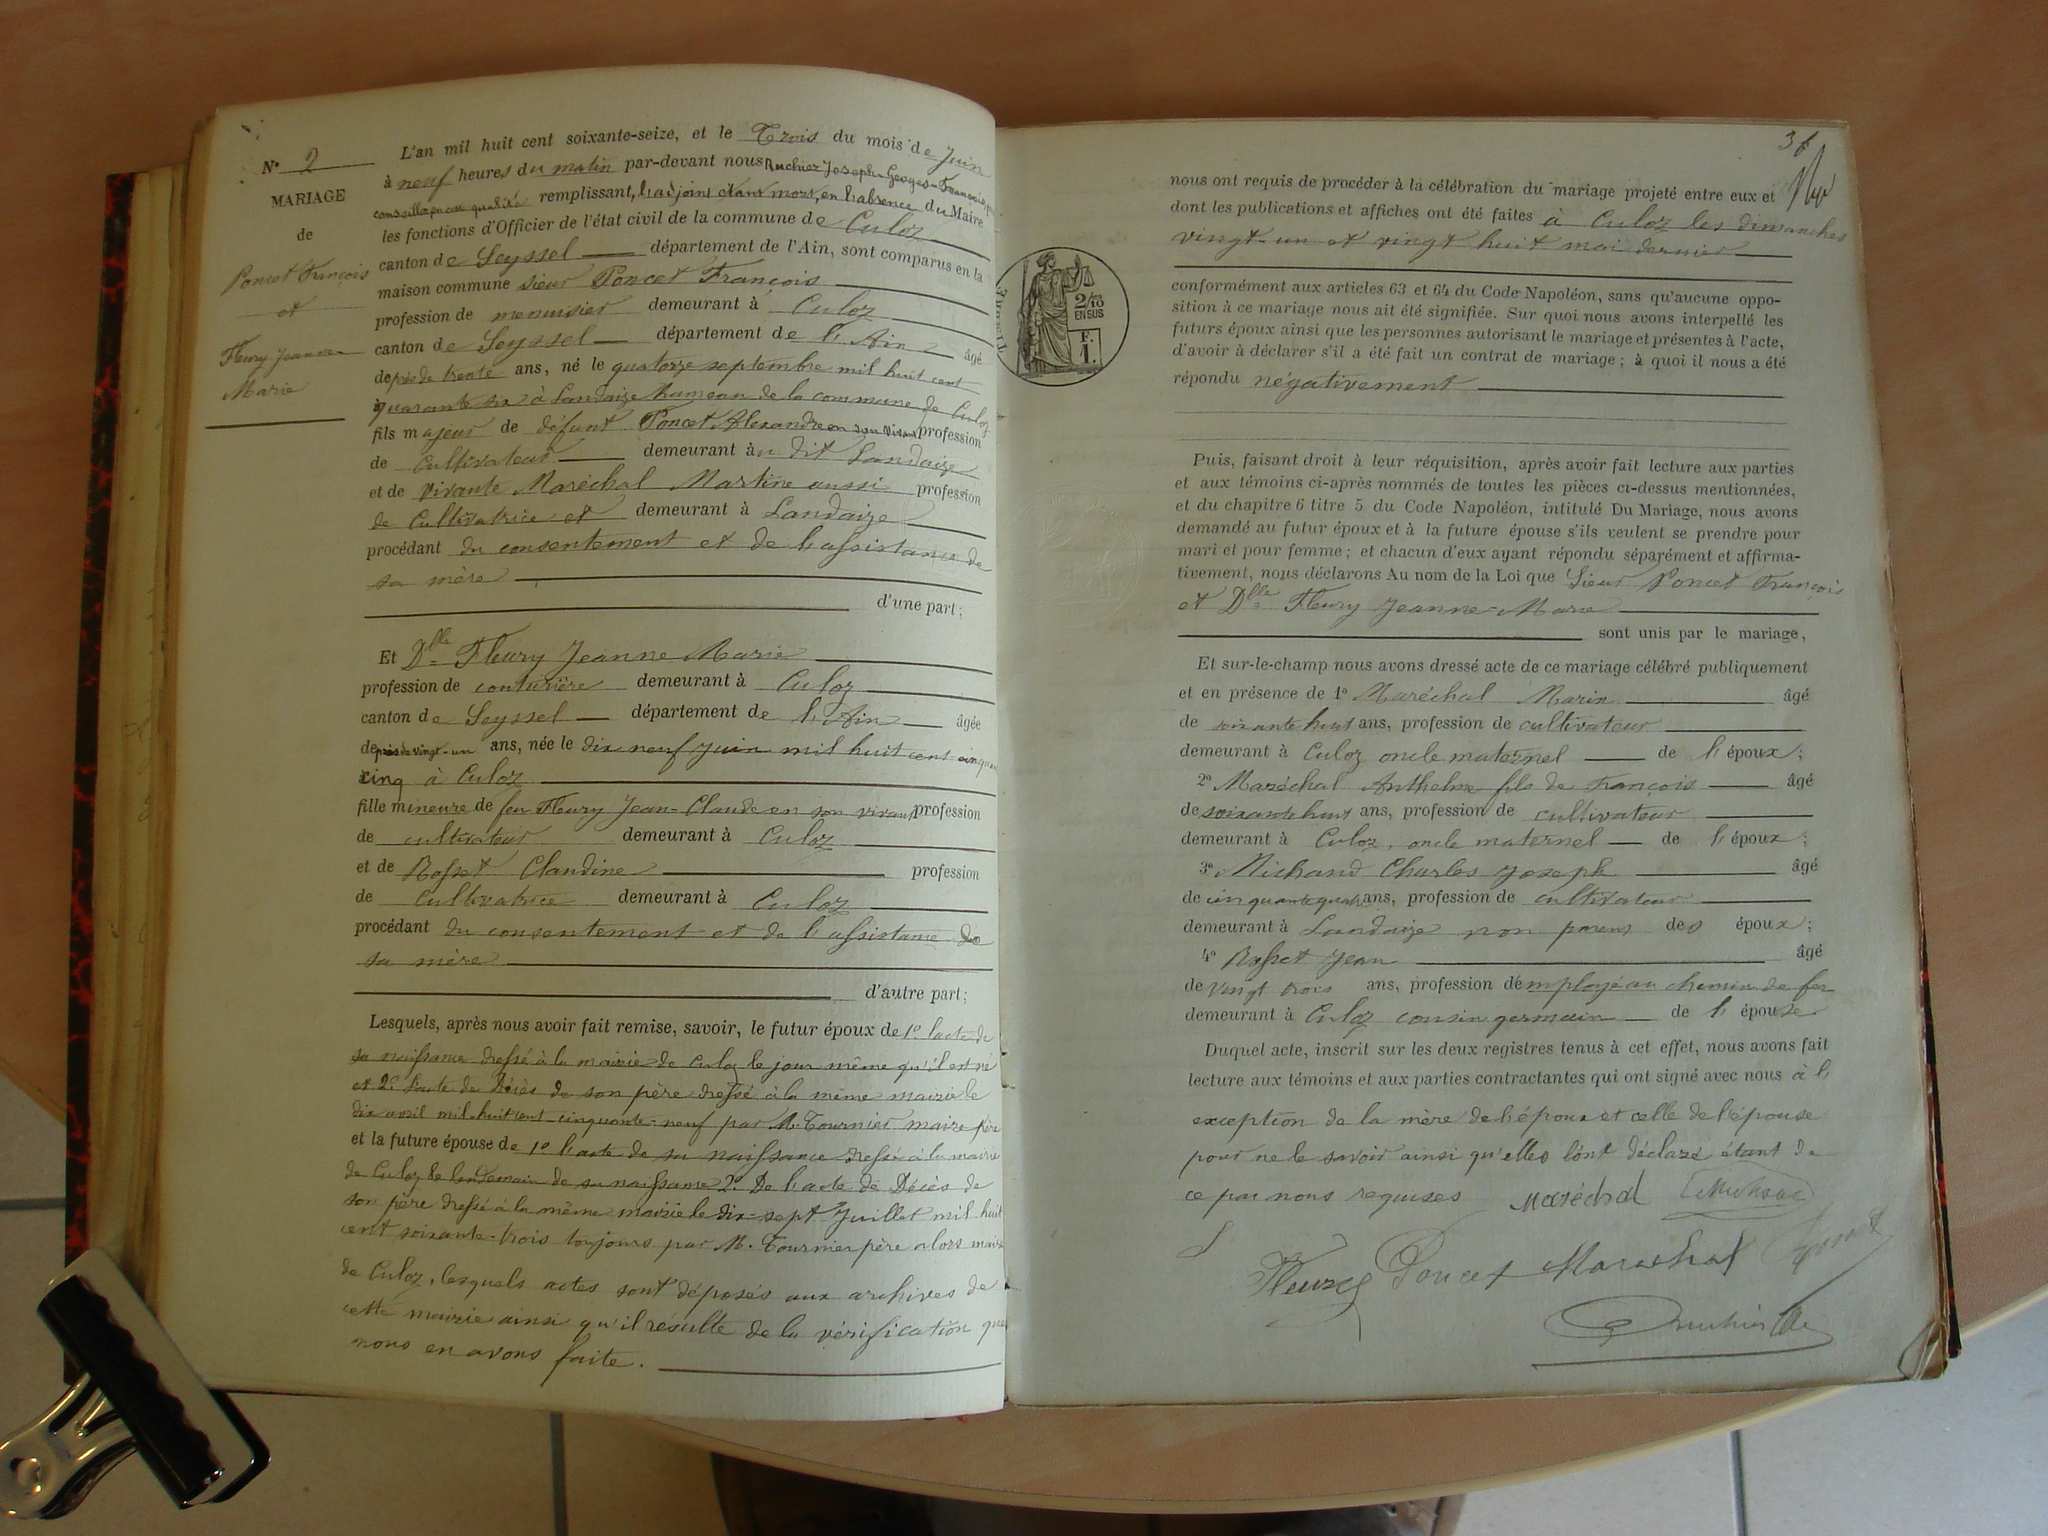 N° 2
MARIAGE
de
Poncet François
et
Fleury Jeanne
Marie
L'an mil huit cent soixante-seize, et le Trois du mois de Juin
à neuf heures du matin par-devant nous Ruchier Joseph-Georges-François
conseiller qualité remplissant, l'adjoint étant mort, en l'absence du Maire
les fonctions d'Officier de l'état civil de la commune de Culoz
canton de Seyssel département de l'Ain, sont comparus en la
maison commune sieur Poncet François
profession de menuisier demeurant à Culoz
canton de Seyssel département de l'Ain âgé
de près de trente ans, né le quatorze septembre mil huit cent
quarante six à Landaize hameau de la commune de Culoz
fils majeur de défunt Poncet Alexandre en son vivant profession
de cultivateur demeurant au dit Landaize
et de vivante Maréchal Martine aussi profession
de Cultivatrice et demeurant à Landaize
procédant du consentement et de l'assistance de
sa mère
d'une part;
Et Dlle Fleury Jeanne Marie
profession de couturière demeurant à Culoz
canton de Seyssel département de l'Ain âgée
de près de vingt-un ans, née le dix neuf juin mil huit cent cinquante
cinq à Culoz
fille mineure de feu Fleury Jean-Claude en son vivant profession
de cultivateur demeurant à Culoz
et de Rosset Claudine profession
de Cultivatrice demeurant à Culoz
procédant du consentement et de l'assistance de
sa mère
d'autre part;
Lesquels, après nous avoir fait remise, savoir, le futur époux de 1° l'acte de
sa naissance dressé à la mairie de Culoz le jour même qu'il est né
et 2° l'acte de Décès de son père dressé à la même mairie le
dix avril mil huit cent cinquante-neuf par M. Tournier maire père
et la future épouse de 1° l'acte de sa naissance dressé à la mairie
de Culoz le lendemain de sa naissance 2° De l'acte de Décès de
son père dressé à la même mairie le dix-sept Juillet mil huit
cent soixante-trois toujours par M. Tournier père alors maire
de Culoz, lesquels actes sont déposés aux archives de
cette mairie ainsi qu'il résulte de la vérification que
nous en avons faite.
2/10
EN SUS
F.
1.
nous ont requis de procéder à la célébration du mariage projeté entre eux et
dont les publications et affiches ont été faites à Culoz les dimanches
vingt-un et vingt huit mai dernier
conformément aux articles 63 et 64 du Code Napoléon, sans qu'aucune oppo-
sition à ce mariage nous ait été signifiée. Sur quoi nous avons interpellé les
futurs époux ainsi que les personnes autorisant le mariage et présentes à l'acte,
d'avoir à déclarer s'il a été fait un contrat de mariage; à quoi il nous a été
répondu négativement
Puis, faisant droit à leur réquisition, après avoir fait lecture aux parties
et aux témoins ci-après nommés de toutes les pièces ci-dessus mentionnées,
et du chapitre 6 titre 5 du Code Napoléon, intitulé Du Mariage, nous avons
demandé au futur époux et à la future épouse s'ils veulent se prendre pour
mari et pour femme; et chacun d'eux ayant répondu séparément et affirma-
tivement, nous déclarons Au nom de la Loi que Sieur Poncet François
et Dlle Fleury Jeanne-Marie
sont unis par le mariage,
Et sur-le-champ nous avons dressé acte de ce mariage célébré publiquement
et en présence de 1° Maréchal Marin âgé
de soixante huit ans, profession de cultivateur
demeurant à Culoz oncle maternel de l'époux;
2° Maréchal Anthelme fils de François âgé
de soixante huit ans, profession de cultivateur
demeurant à Culoz, oncle maternel de l'époux;
3° Michaud Charles Joseph âgé
de cinquante quatre ans, profession de cultivateur
demeurant à Landaize non parent des époux;
4° Rosset Jean âgé
de vingt trois ans, profession d'employé au chemin de fer
demeurant à Culoz cousin germain de l'épouse
Duquel acte, inscrit sur les deux registres tenus à cet effet, nous avons fait
lecture aux témoins et aux parties contractantes qui ont signé avec nous à l'
exception de la mère de l'époux et celle de l'épouse
pour ne le savoir ainsi qu'elles l'ont déclaré étant de
ce par nous requises Maréchal
Fleury Poncet Marechal